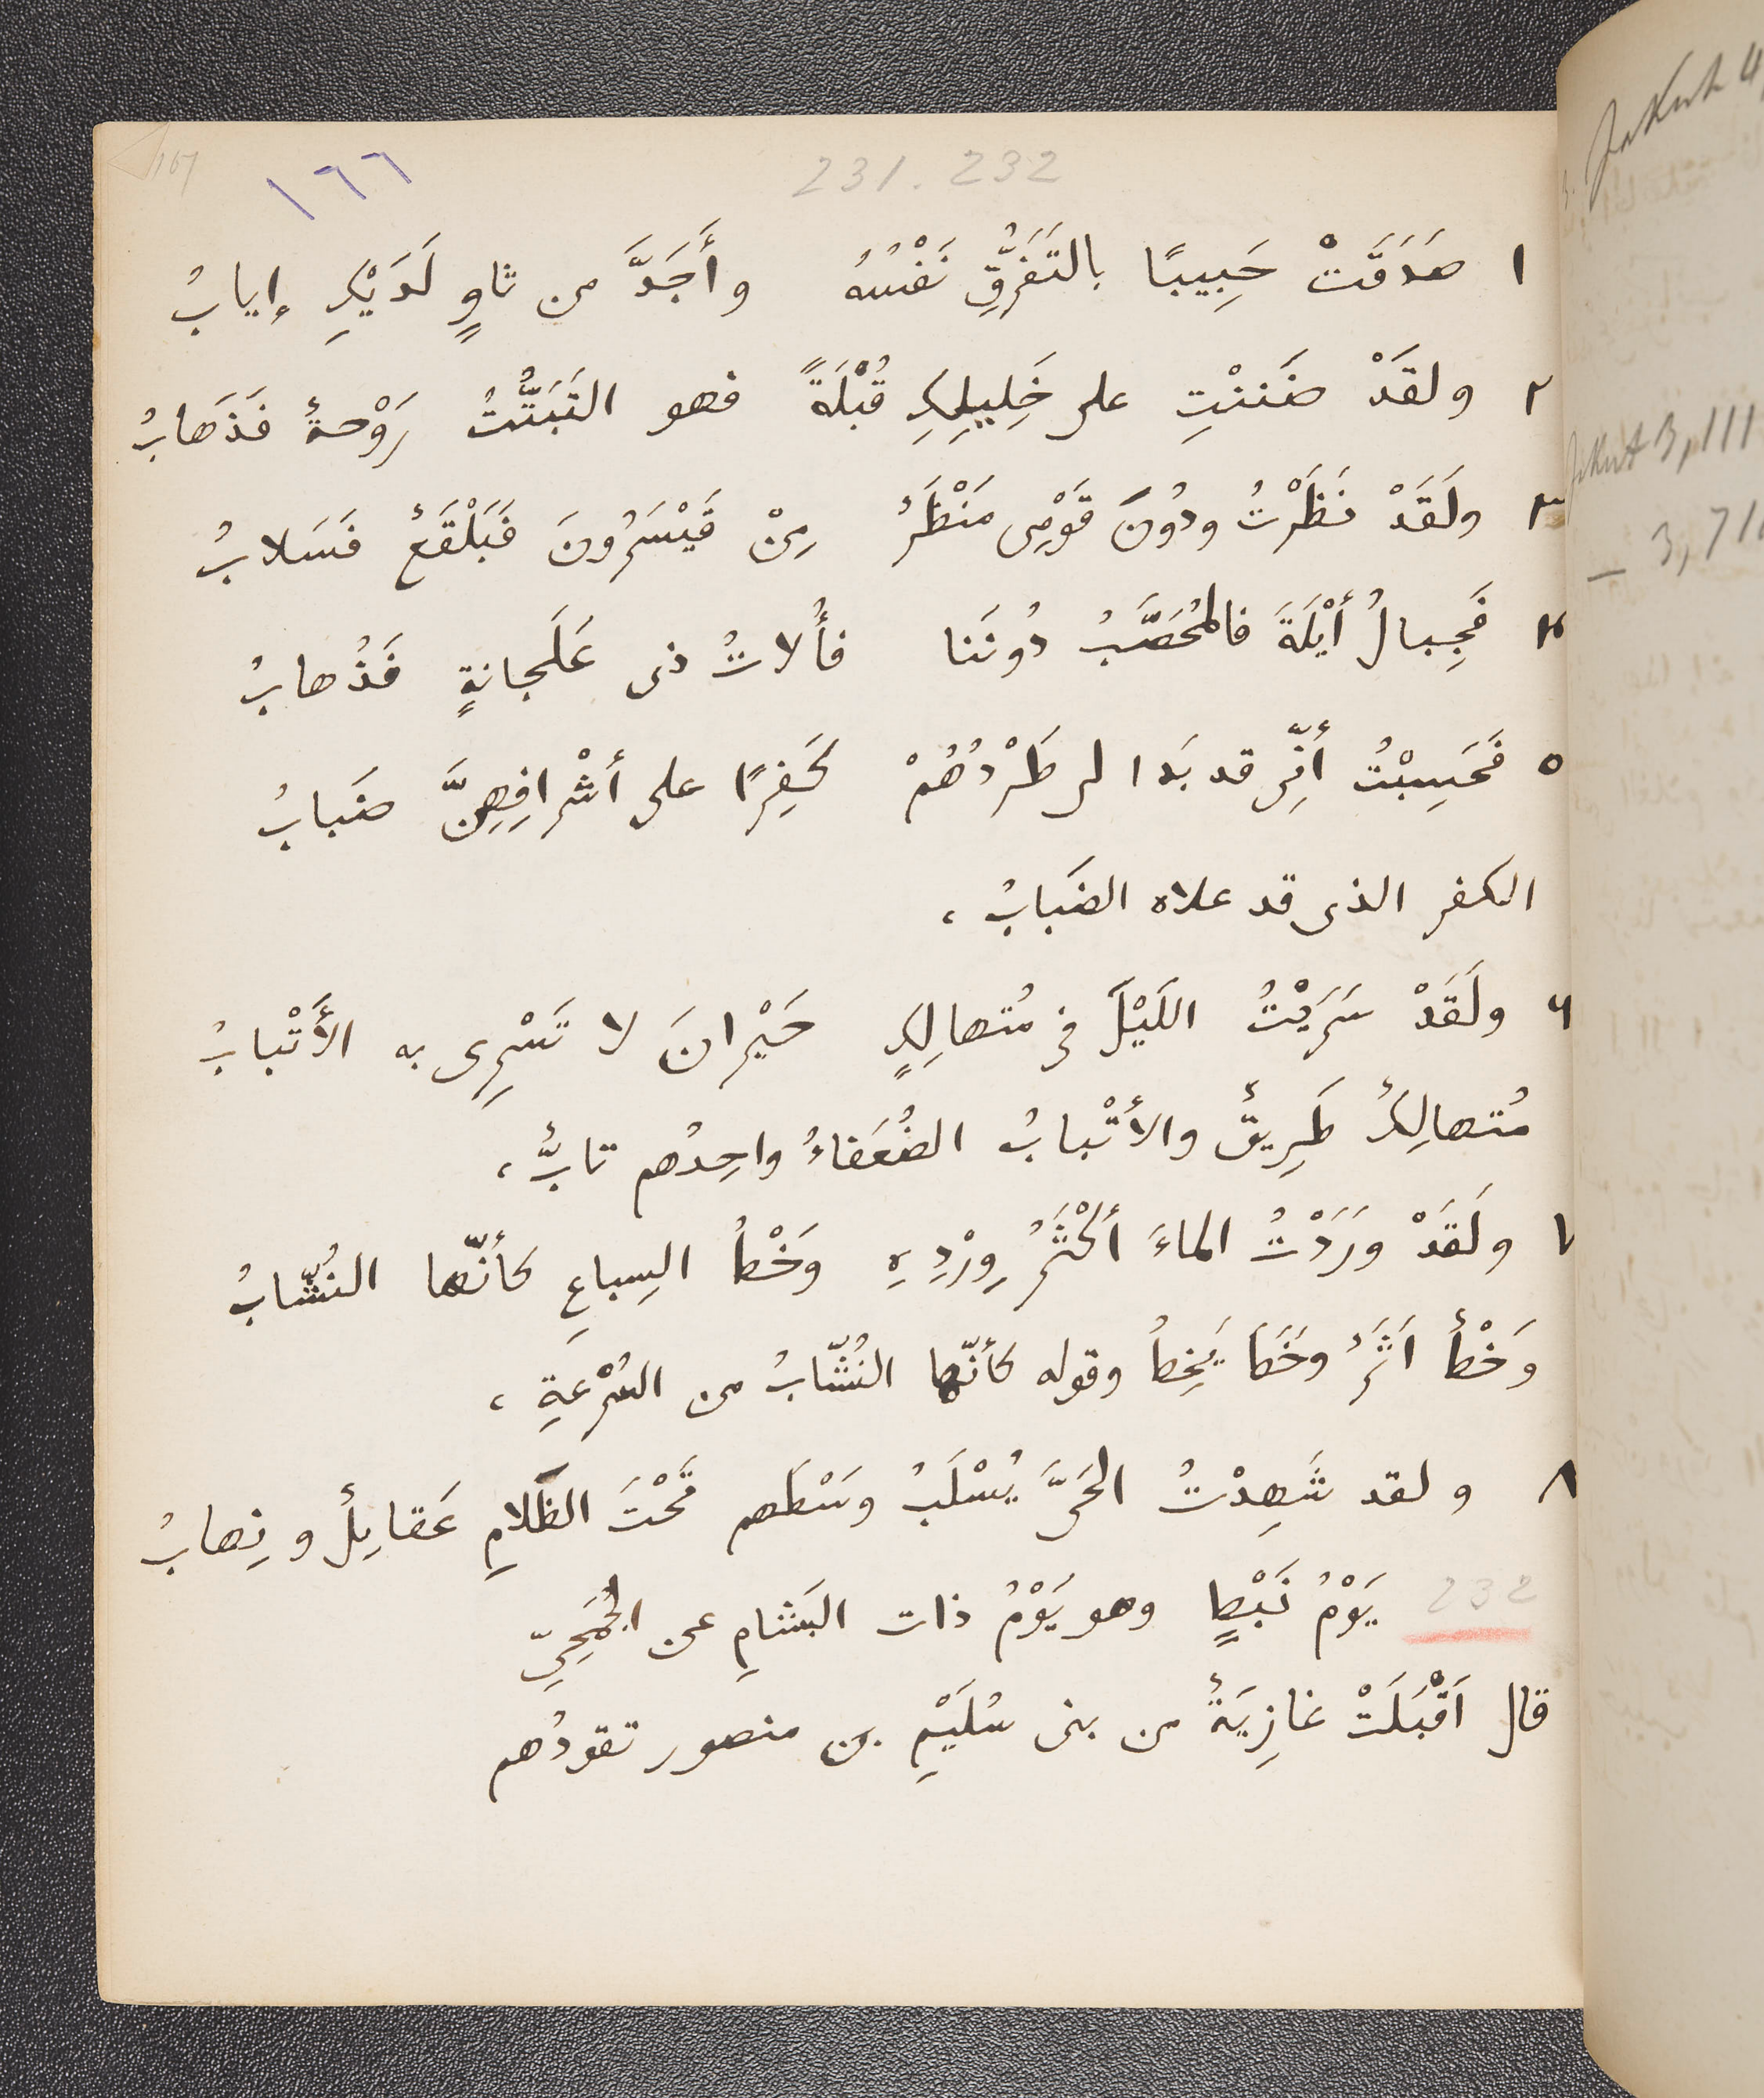 167
١٦٦
231. 232
١ صَدَقَتْ حَبِيبًا بالتَفَرُّقِ نَفْسُهُ وأَجَدَّ من ثاوٍ لَدَيْكِ إيابُ
٢ ولقَدْ ضَننْتِ على خَلِيلِكِ قُبْلَةً فهو التَبَتُّتُ رَوْحةٌ فَذَهَابُ
٣ ولَقَدْ نَظَرْتُ ودُونَ قَوْمِى مَنْظَرٌ مِنْ قَيْسَرُونَ فَبَلْقَعٌ فَسَلابُ
٤ فَجِبالُ أَيْلَةَ فالمُحَصَّبُ دُونَنا فأُلاتُ ذى عَلَجانةٍ فَذُهابُ
٥ فَحَسِبْتُ أنّى قد بَدا لى طَرْدُهُمْ كَفِرًا على أشْرافِهِنَّ ضَبابُ
الكفر الذى قد علاه الضَبابُ ،
٦ ولَقَدْ سَرَيْتُ اللَيْلَ فى مُتهالِكٍ حَيْرانَ لا تَسْرِى به الأَتْبابُ
مُتهالِكٌ طَرِيقٌ والأتْبابُ الضُعَفاءُ واحِدُهم تابٌّ ،
٧ ولَقَدْ وَرَدْتُ الماءَ أكْثَرُ وِرْدِهِ وَخْطُ السِباعِ كأنّها النُشّابُ
وَخْطٌ اَثَرٌ وخَطَ يَخِطُ وقوله كأنّها النُشّابُ من السُرْعةِ ،
٨ ولقد شَهِدْتُ الحَىَّ يُسْلَبُ وَسْطَهم تَحْتَ الظَلامِ عَقايِلٌ ونِهابُ
232 يَوْمُ نَبْطٍ وهو يَوْمُ ذات البَشامِ عن الجُمَحِىّ
قال اَقْبَلَتْ غازِيَةٌ من بنى سُلَيْمِ بن منصور تقودُهم
Jakut 4,
Jakut 3, 111
— 3, 71